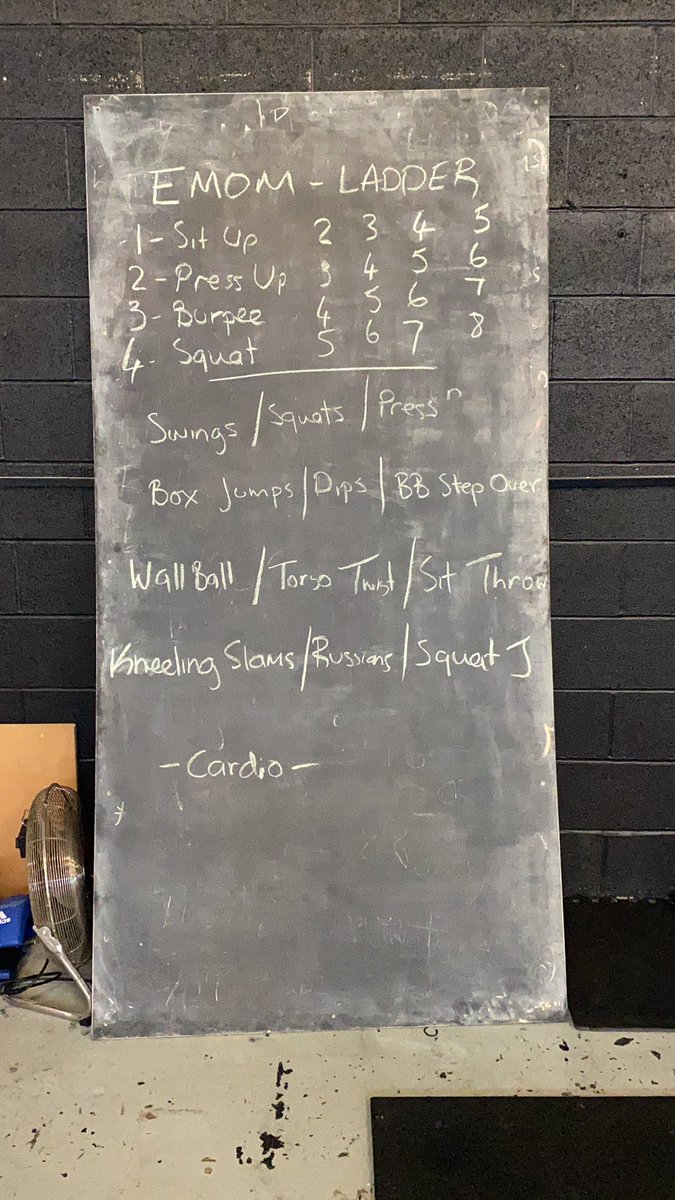 EMOM - LADDER
1 - Sit Up 2 3 4 5
2 - Press Up 3 4 5 6
3 - Burpee 4 5 6 7
4 - Squat 5 6 7 8
Swings / Squats / Press n
Box Jumps / Dips / BB Step Over
Wall Ball / Torso Twist / Sit Throw
Kneeling Slams / Russians / Squat J
- Cardio -